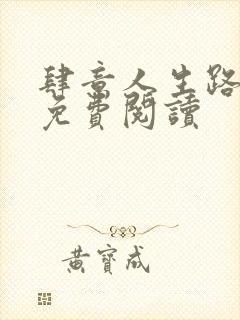 肆意人生路
免費閱讀
黃寶成